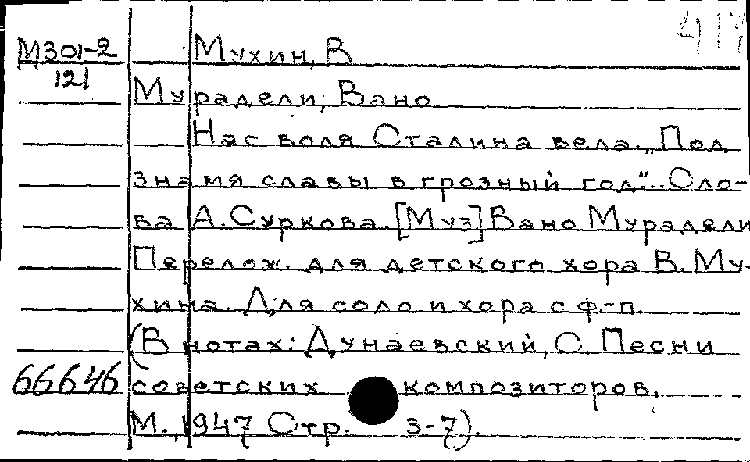 М301-2 Мухин, В
121
Мурадели, Вано
Нас воля Сталина вела. „Под
знамя славы в грозный год". Сло-
ва А. Суркова. [Муз] Вано Мурадели
Перелож. для детского хора В. Му-
хина. Для соло и хора с ф-п.
(В нотах: Дунаевский, О. Песни
66646 советских композиторов.
М., 1947 Стр. 3-7).